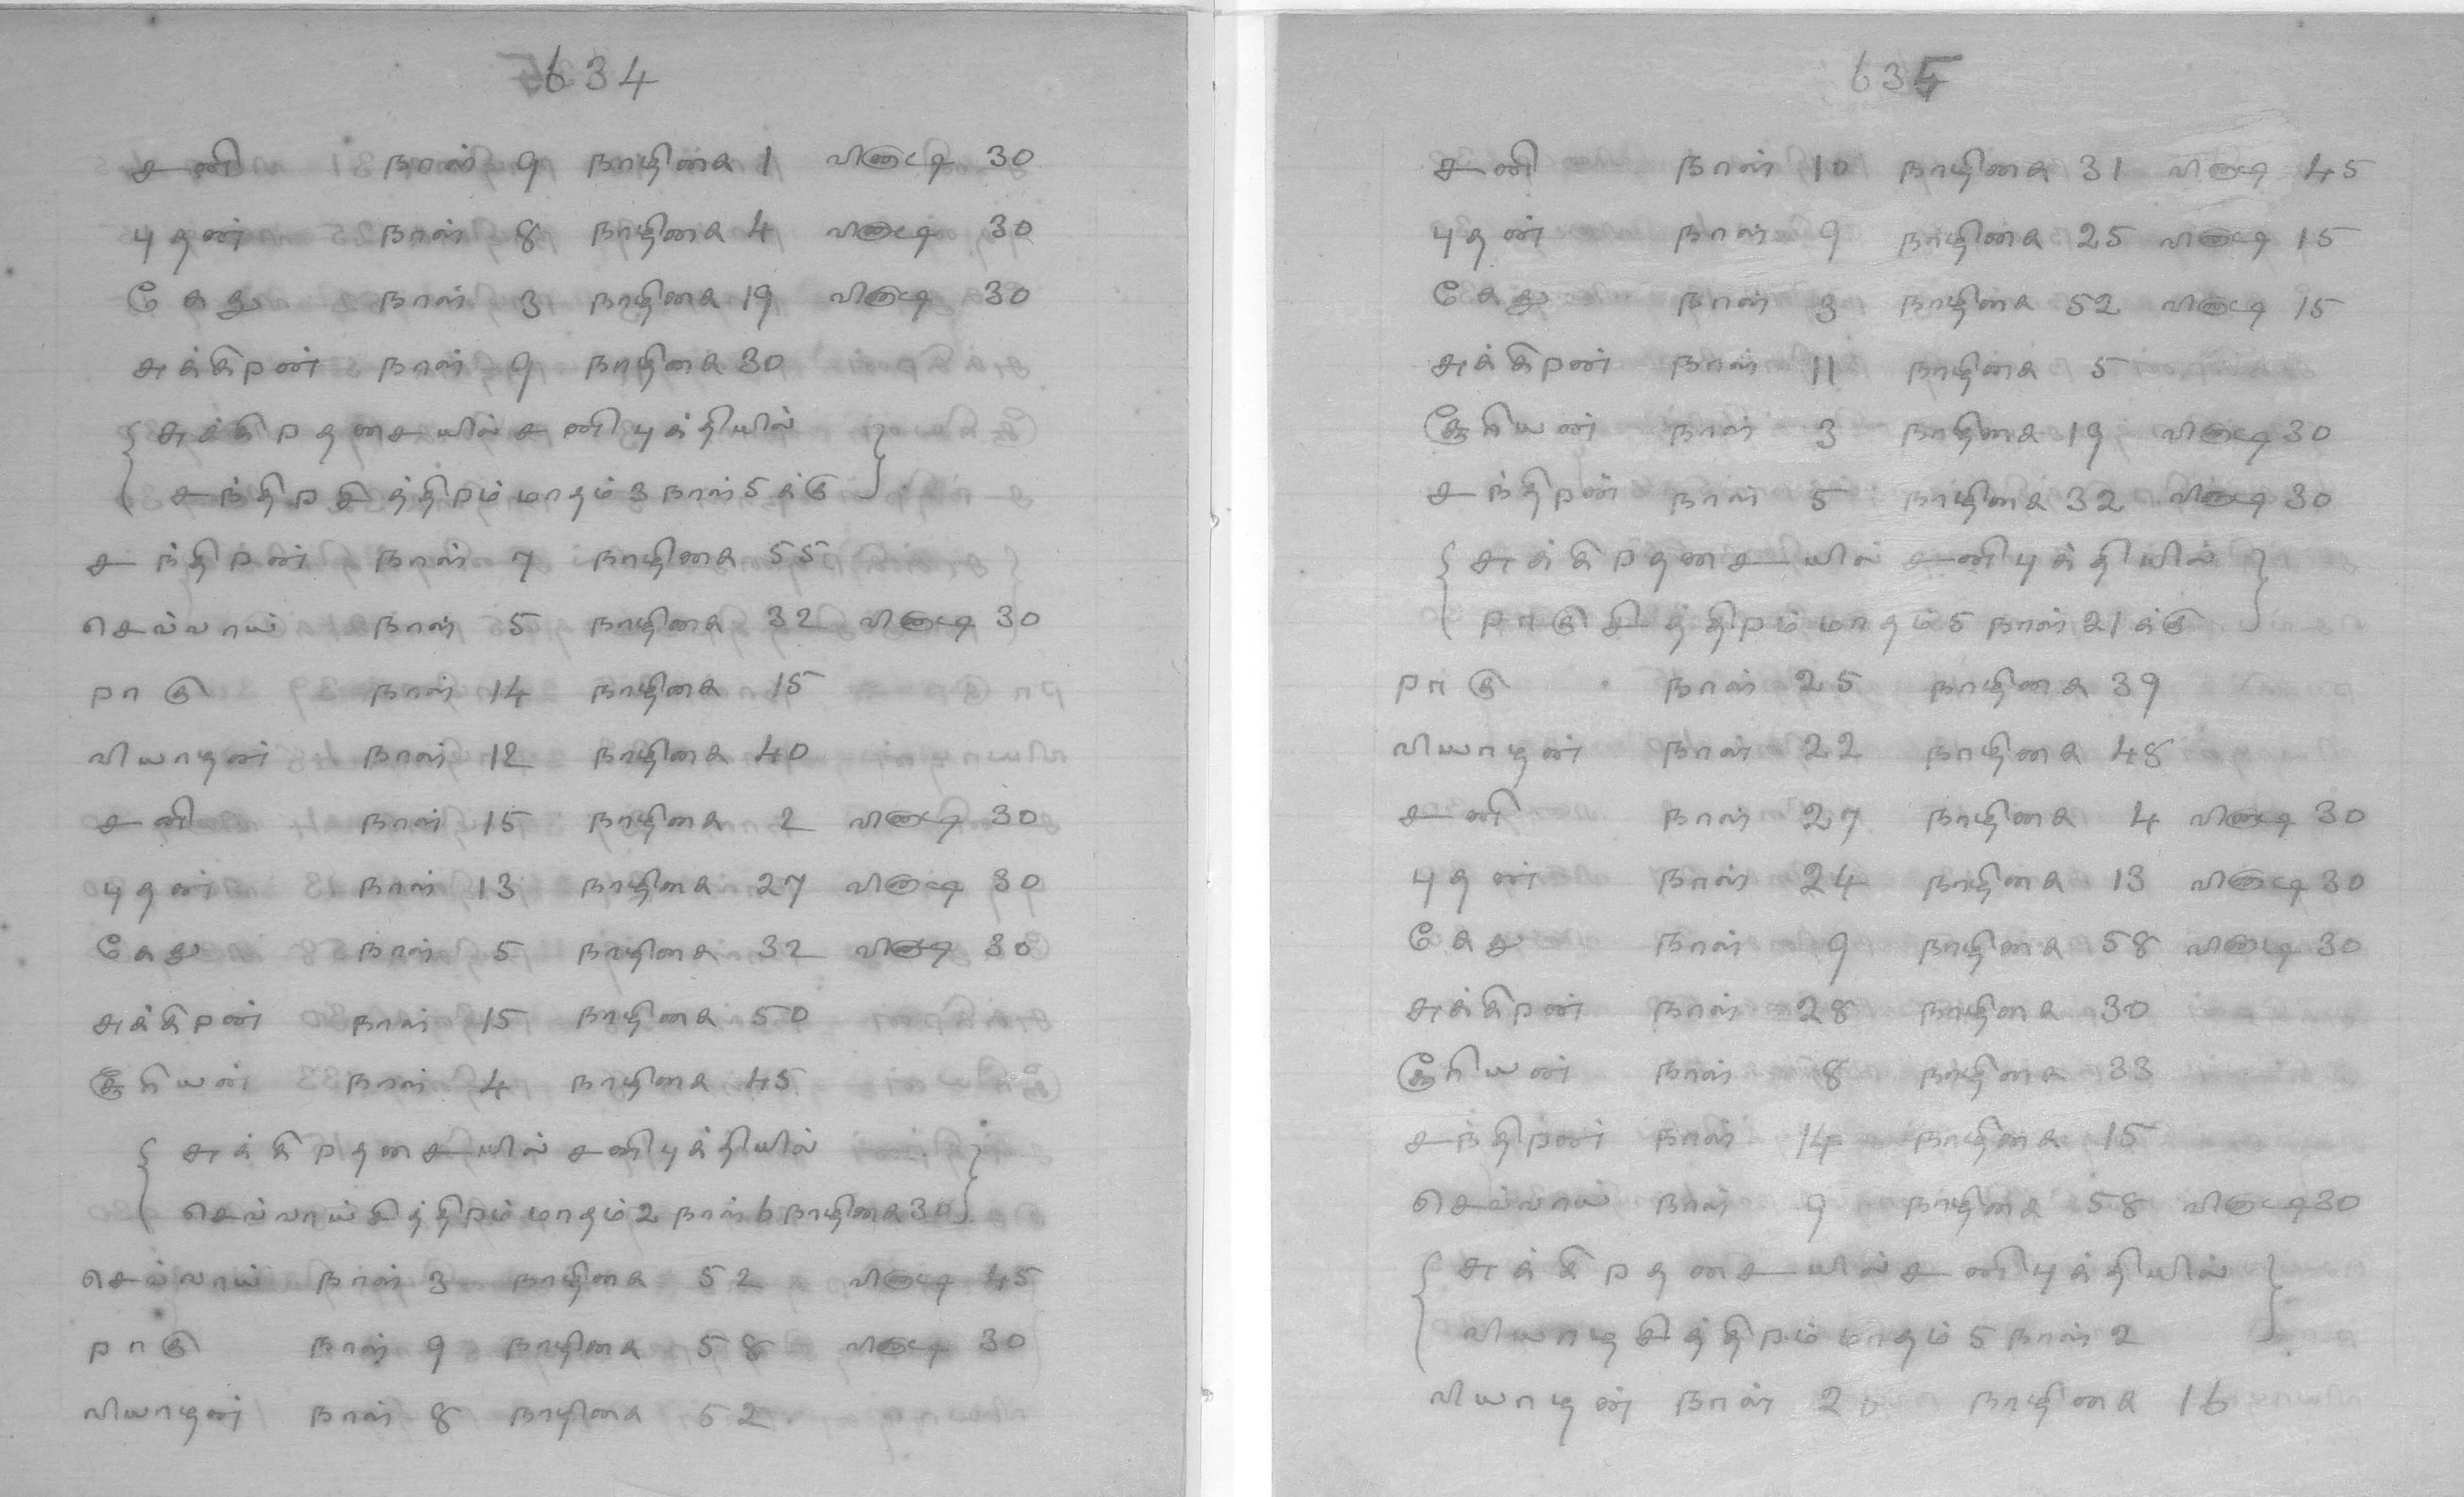 634
சனி நாள் 9 நாழிகை 1 வினாடி 30
புதன் நாள் 8 நாழிகை 4 வினாடி 30
கேது நாள் 3 நாழிகை 19 வினாடி 30
சுக்கிறன் நாள் 9 நாழிகை 30
சுக்கிறதசையில் சனிபுக்தியில்
சந்திறசித்திறம் மாதம் 3 நாள் 5 க்கு
சந்திறன் நாள் 7 நாழிகை 55
செவ்வாய் நாள் 5 நாழிகை 32 வினாடி 30
றாகு நாள் 14 நாழிகை 15
வியாழன் நாள் 12 நாழிகை 40
சனி நாள் 15 நாழிகை 2 வினாடி 30
புதன் நாள் 13 நாழிகை 27 வினாடி 30
கேது நாள் 5 நாழிகை 32 வினாடி 30
சுக்கிறன் நாள் 15 நாழிகை 50
சூரியன் நாள் 4 நாழிகை 45
சுக்கிறதசையில் சனிபுக்தியில்
செவ்வாய்சித்திறம் மாதம் 2 நாள் 6 நாழிகை 30
செவ்வாய் நாள் 3 நாழிகை 52 வினாடி 45
றாகு நாள் 9 நாழிகை 58 வினாடி 30
வியாழன் நாள் 8 நாழிகை 52
635
சனி நாள் 10 நாழிகை 31 வினாடி 45
புதன் நாள் 9 நாழிகை 25 வினாடி 15
கேது நாள் 3 நாழிகை 52 வினாடி 15
சுக்கிறன் நாள் 11 நாழிகை 5
சூரியன் நாள் 3 நாழிகை 19 வினாடி 30
சந்திறன் நாள் 5 நாழிகை 32 வினாடி 30
சுக்கிறதசையில் சனிபுக்தியில்
றாகுசித்திறம் மாதம் 5 நாள் 21 க்கு
றாகு நாள் 25 நாழிகை 39
வியாழன் நாள் 22 நாழிகை 48
சனி நாள் 27 நாழிகை 4 வினாடி 30
புதன் நாள் 24 நாழிகை 13 வினாடி 30
கேது நாள் 9 நாழிகை 58 வினாடி 30
சுக்கிறன் நாள் 28 நாழிகை 30
சூரியன் நாள் 8 நாழிகை 33
சந்திறன் நாள் 14 நாழிகை 15
செவ்வாய் நாள் 9 நாழிகை 58 வினாடி 30
சுக்கிறதசையில் சனிபுக்தியில்
வியாழசித்திறம் மாதம் 5 நாள் 2
வியாழன் நாள் 20 நாழிகை 16